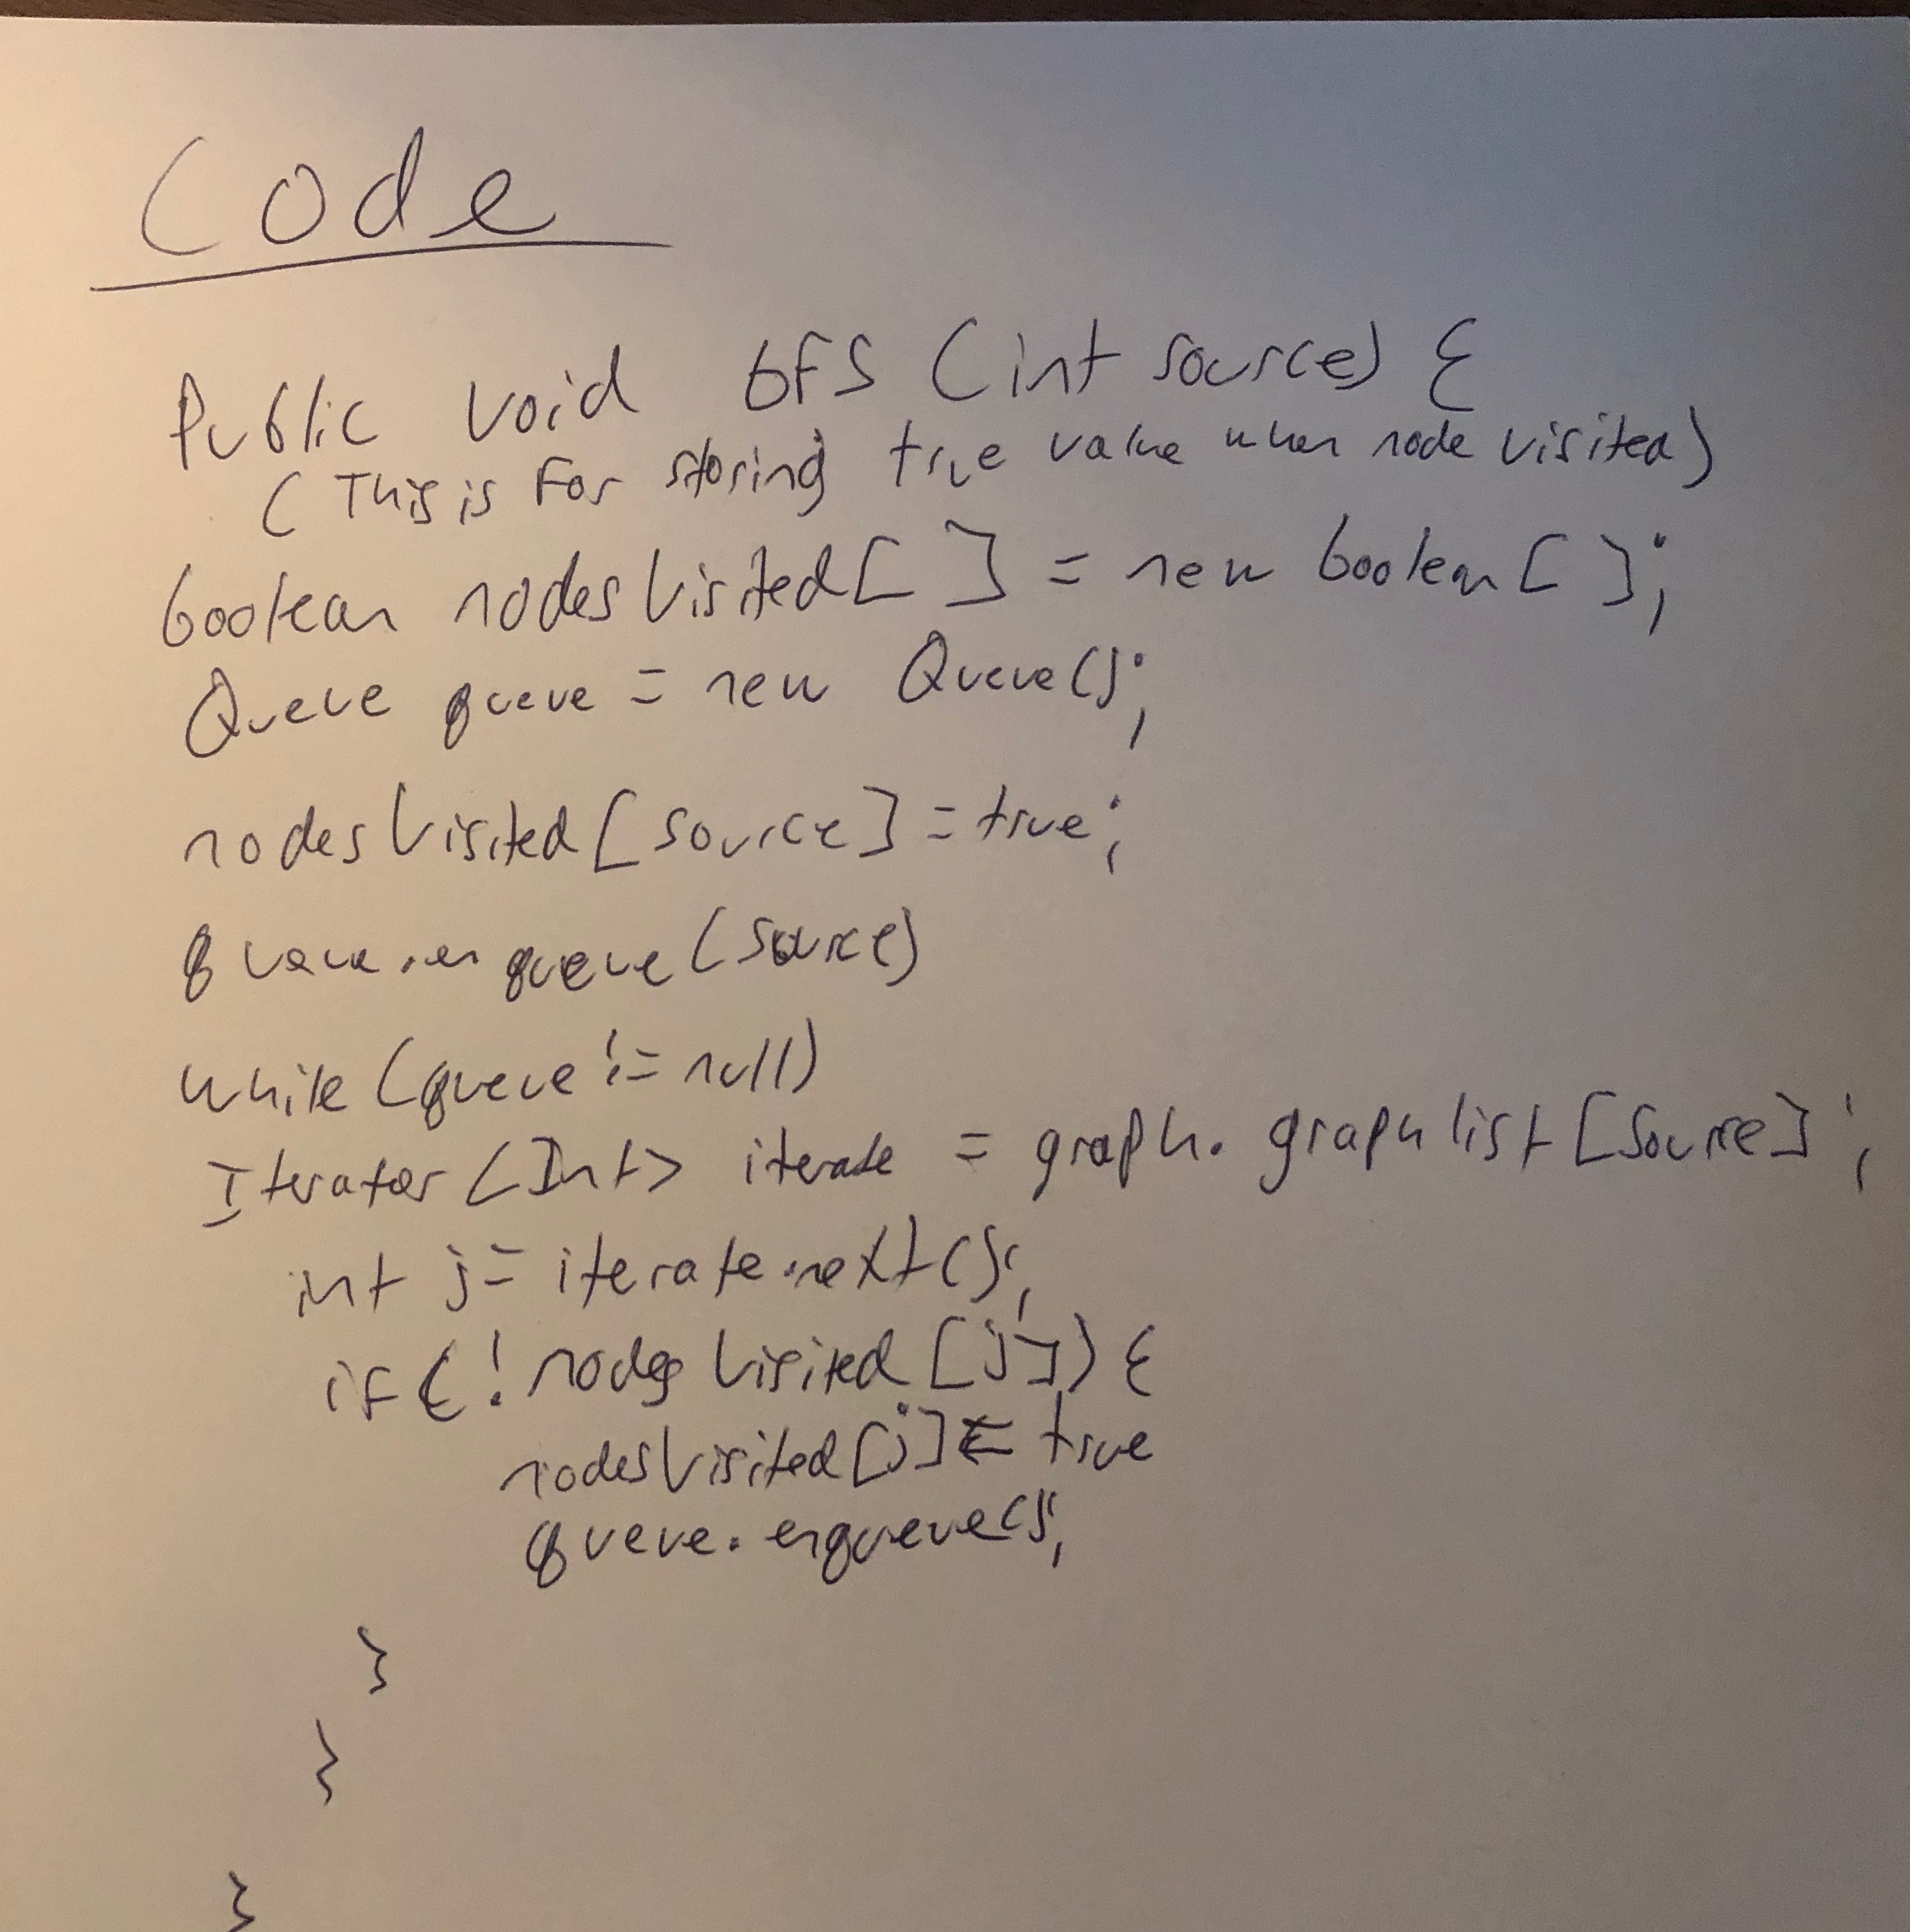 Code
Public void bfs (int source) {
( This is For storing true value when node visited)
boolean nodesVisited[ ] = new boolean[ ];
Queue queue = new Queue();
nodesVisited[source] = true;
queue.enqueue(source)
while (queue != null)
Iterator <Int> iterate = graph.graphlist[source];
int j = iterate.next();
if (! nodesVisited[j]) {
nodesVisited[j] = true
queue.enqueue();
}
}
}